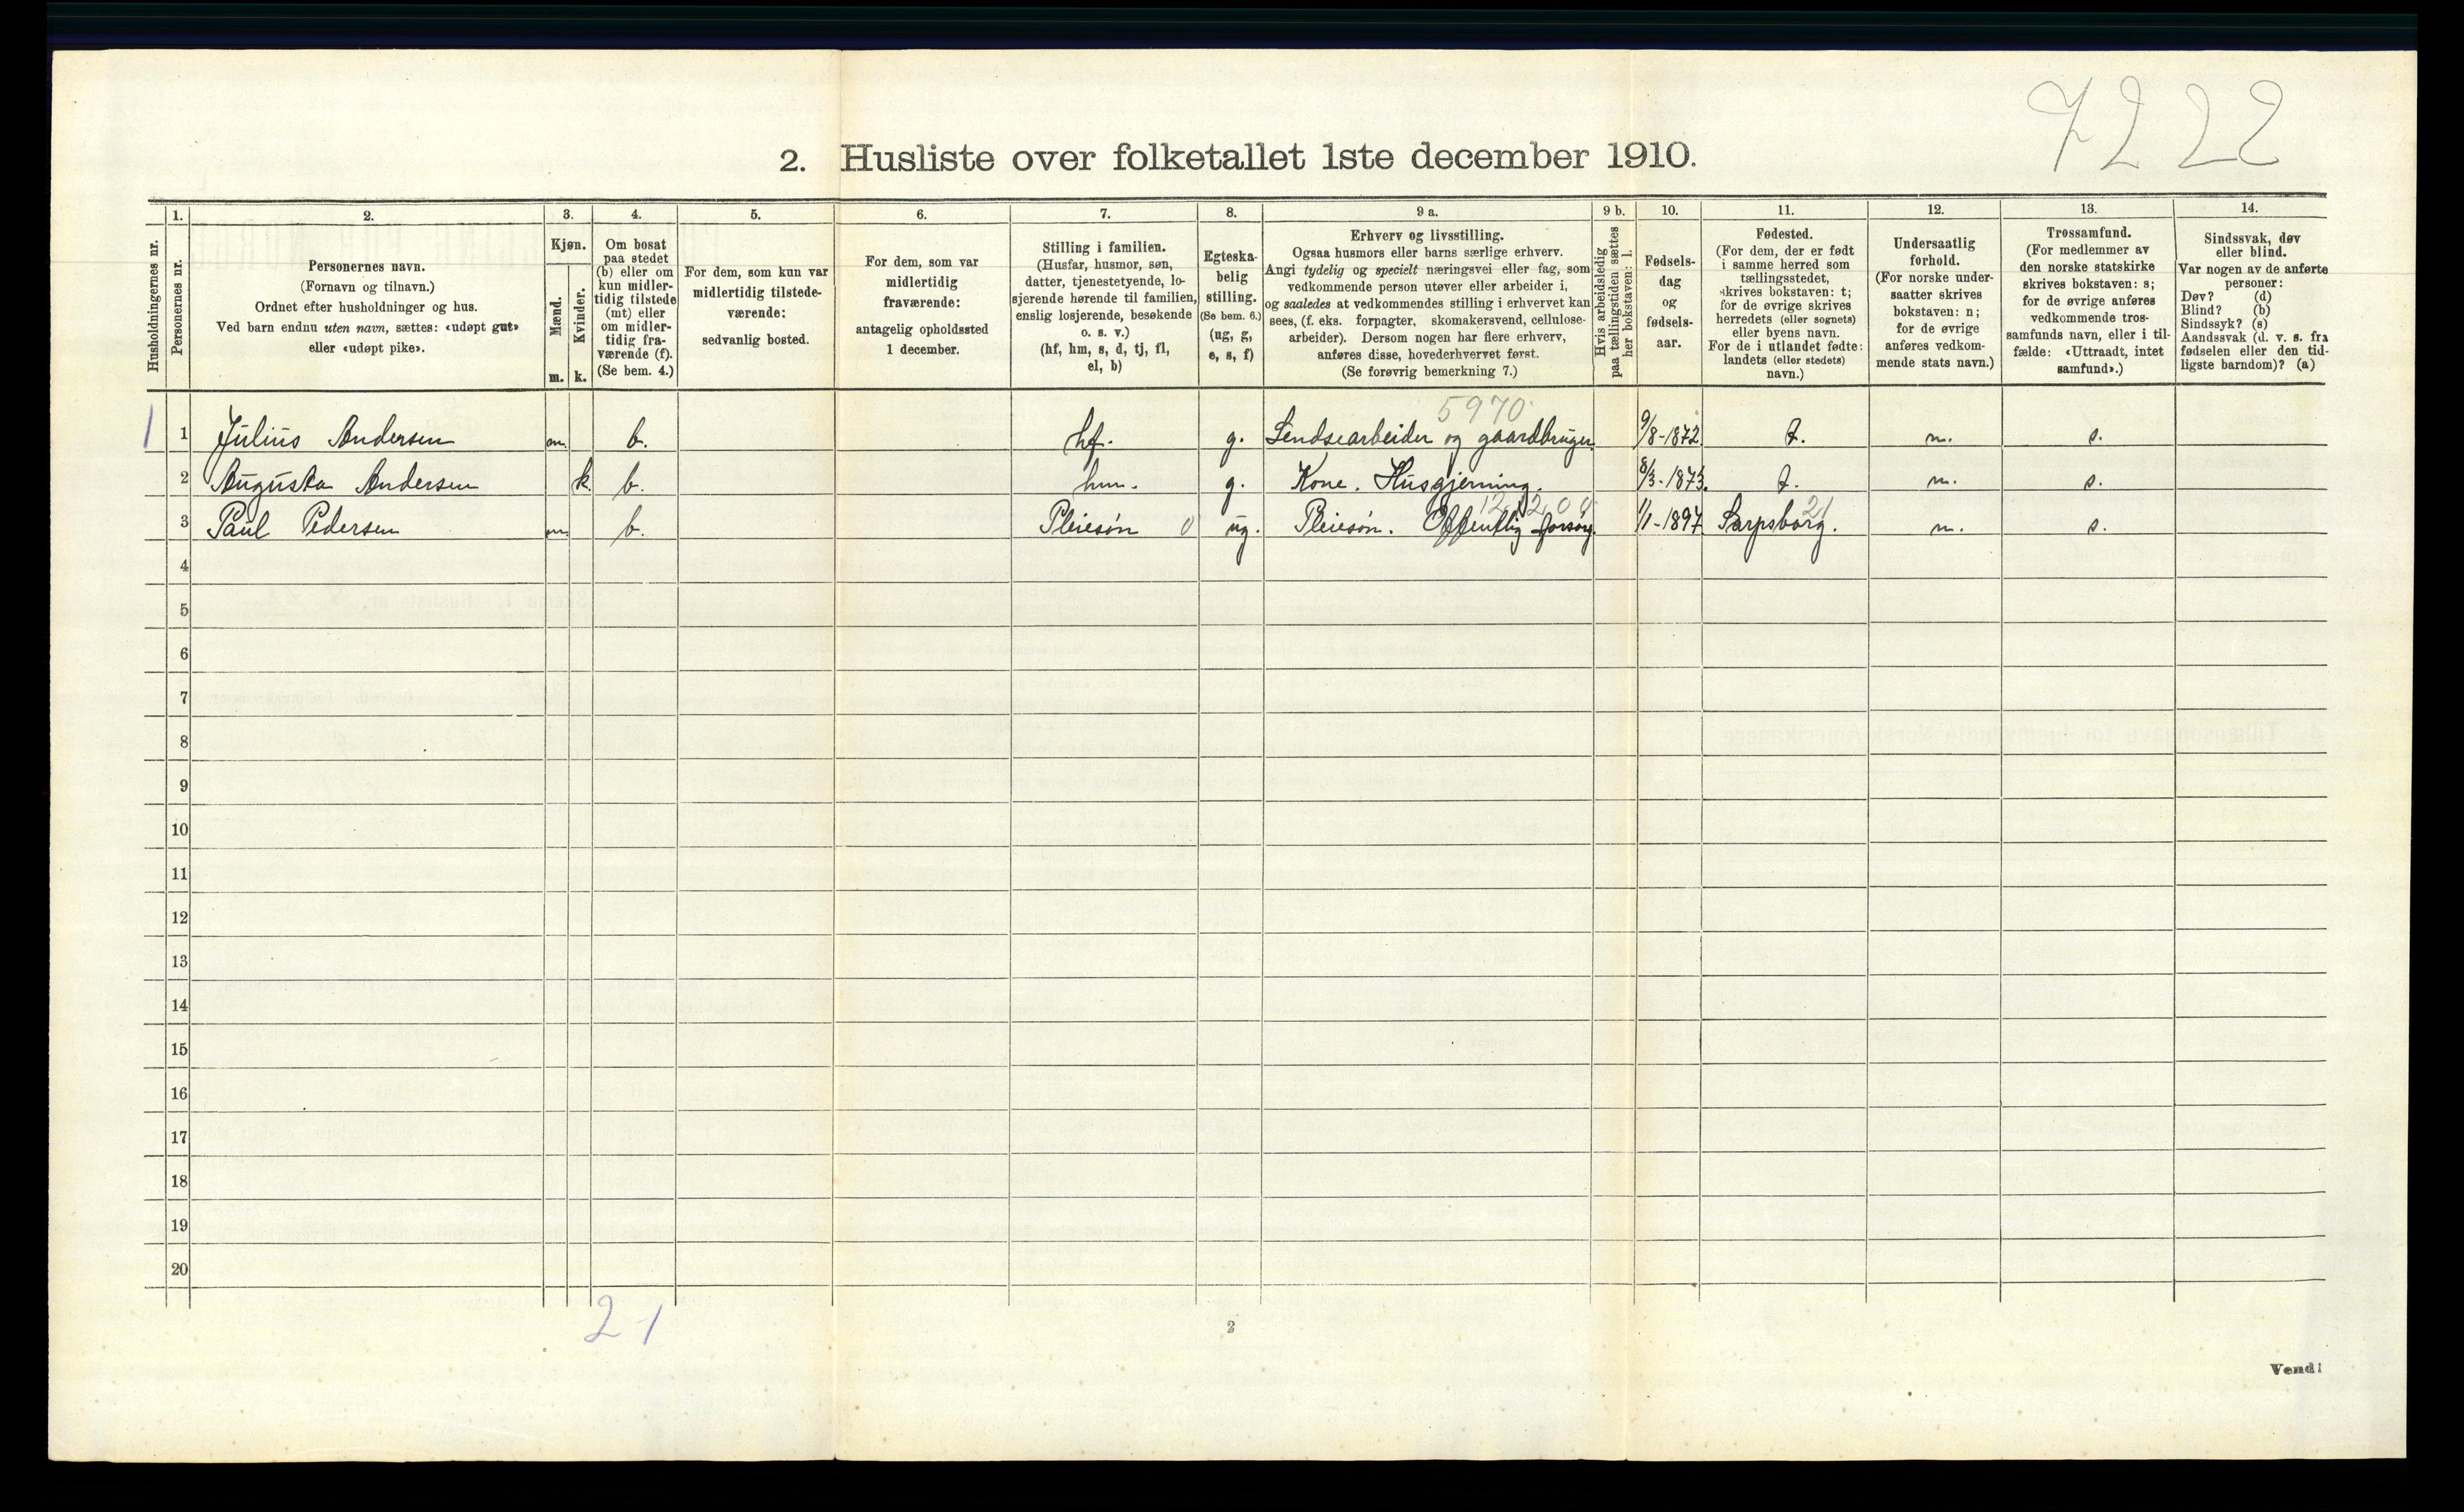 7222
2. Husliste over folketallet 1ste december 1910.
Husholdningernes nr.
1.
Personernes nr.
2.
Personernes navn.
(Fornavn og tilnavn.)
Ordnet efter husholdninger og hus.
Ved barn endnu uten navn, sættes: «udøpt gut»
eller «udøpt pike».
3.
Kjøn.
Mænd.
Kvinder.
m. k.
4.
Om bosat
paa stedet
(b) eller om
kun midler-
tidig tilstede
(mt) eller
om midler-
tidig fra-
værende (f).
(Se bem. 4.)
5.
For dem, som kun var
midlertidig tilstede-
værende:
sedvanlig bosted.
6.
For dem, som var
midlertidig
fraværende:
antagelig opholdssted
1 december.
7.
Stilling i familien.
(Husfar, husmor, søn,
datter, tjenestetyende, lo-
sjerende hørende til familien,
enslig losjerende, besøkende
o. s. v.)
(hf, hm, s, d, tj, fl,
el, b)
8.
Egteska-
belig
stilling.
(Se bem. 6.)
(ug, g,
e, s, f)
9 a.
Erhverv og livsstilling.
Ogsaa husmors eller barns særlige erhverv.
Angi tydelig og specielt næringsvei eller fag, som
vedkommende person utøver eller arbeider i,
og saaledes at vedkommendes stilling i erhvervet kan
sees, (f. eks. forpagter, skomakersvend, cellulose-
arbeider). Dersom nogen har flere erhverv,
anføres disse, hovederhvervet først.
(Se forøvrig bemerkning 7.)
9 b.
Hvis arbeidsledig
paa tællingstiden sættes
her bokstaven: l.
10.
Fødsels-
dag
og
fødsels-
aar.
11.
Fødested.
(For dem, der er født
i samme herred som
tællingsstedet,
skrives bokstaven: t;
for de øvrige skrives
herredets (eller sognets)
eller byens navn.
For de i utlandet fødte:
landets (eller stedets)
navn.)
12.
Undersaatlig
forhold.
(For norske under-
saatter skrives
bokstaven: n;
for de øvrige
anføres vedkom-
mende stats navn.)
13.
Trossamfund.
(For medlemmer av
den norske statskirke
skrives bokstaven: s;
for de øvrige anføres
vedkommende tros-
samfunds navn, eller i til-
fælde: «Uttraadt, intet
samfund».)
14.
Sindssvak, døv
eller blind.
Var nogen av de anførte
personer:
Døv? (d)
Blind? (b)
Sindssyk? (s)
Aandssvak (d. v. s. fra
fødselen eller den tid-
ligste barndom)? (a)
5970
1 1 Julius Andersen m. b. hf. g. Lendsearbeider og gaardbruger 9/8-1872 t. n. s.
2 Augusta Andersen k b. hm. g. Kone. Husgjerning. 8/3-1873. t. n. s.
3 Paul Pedersen m. b. Pleiesøn 0 ug. Pleiesøn. Offentlig forsørg. 1/1-1897 Sarpsborg. 21 n. s.
4
5
6
7
8
9
10
11
12
13
14
15
16
17
18
19
20
2 1
2
Vend!